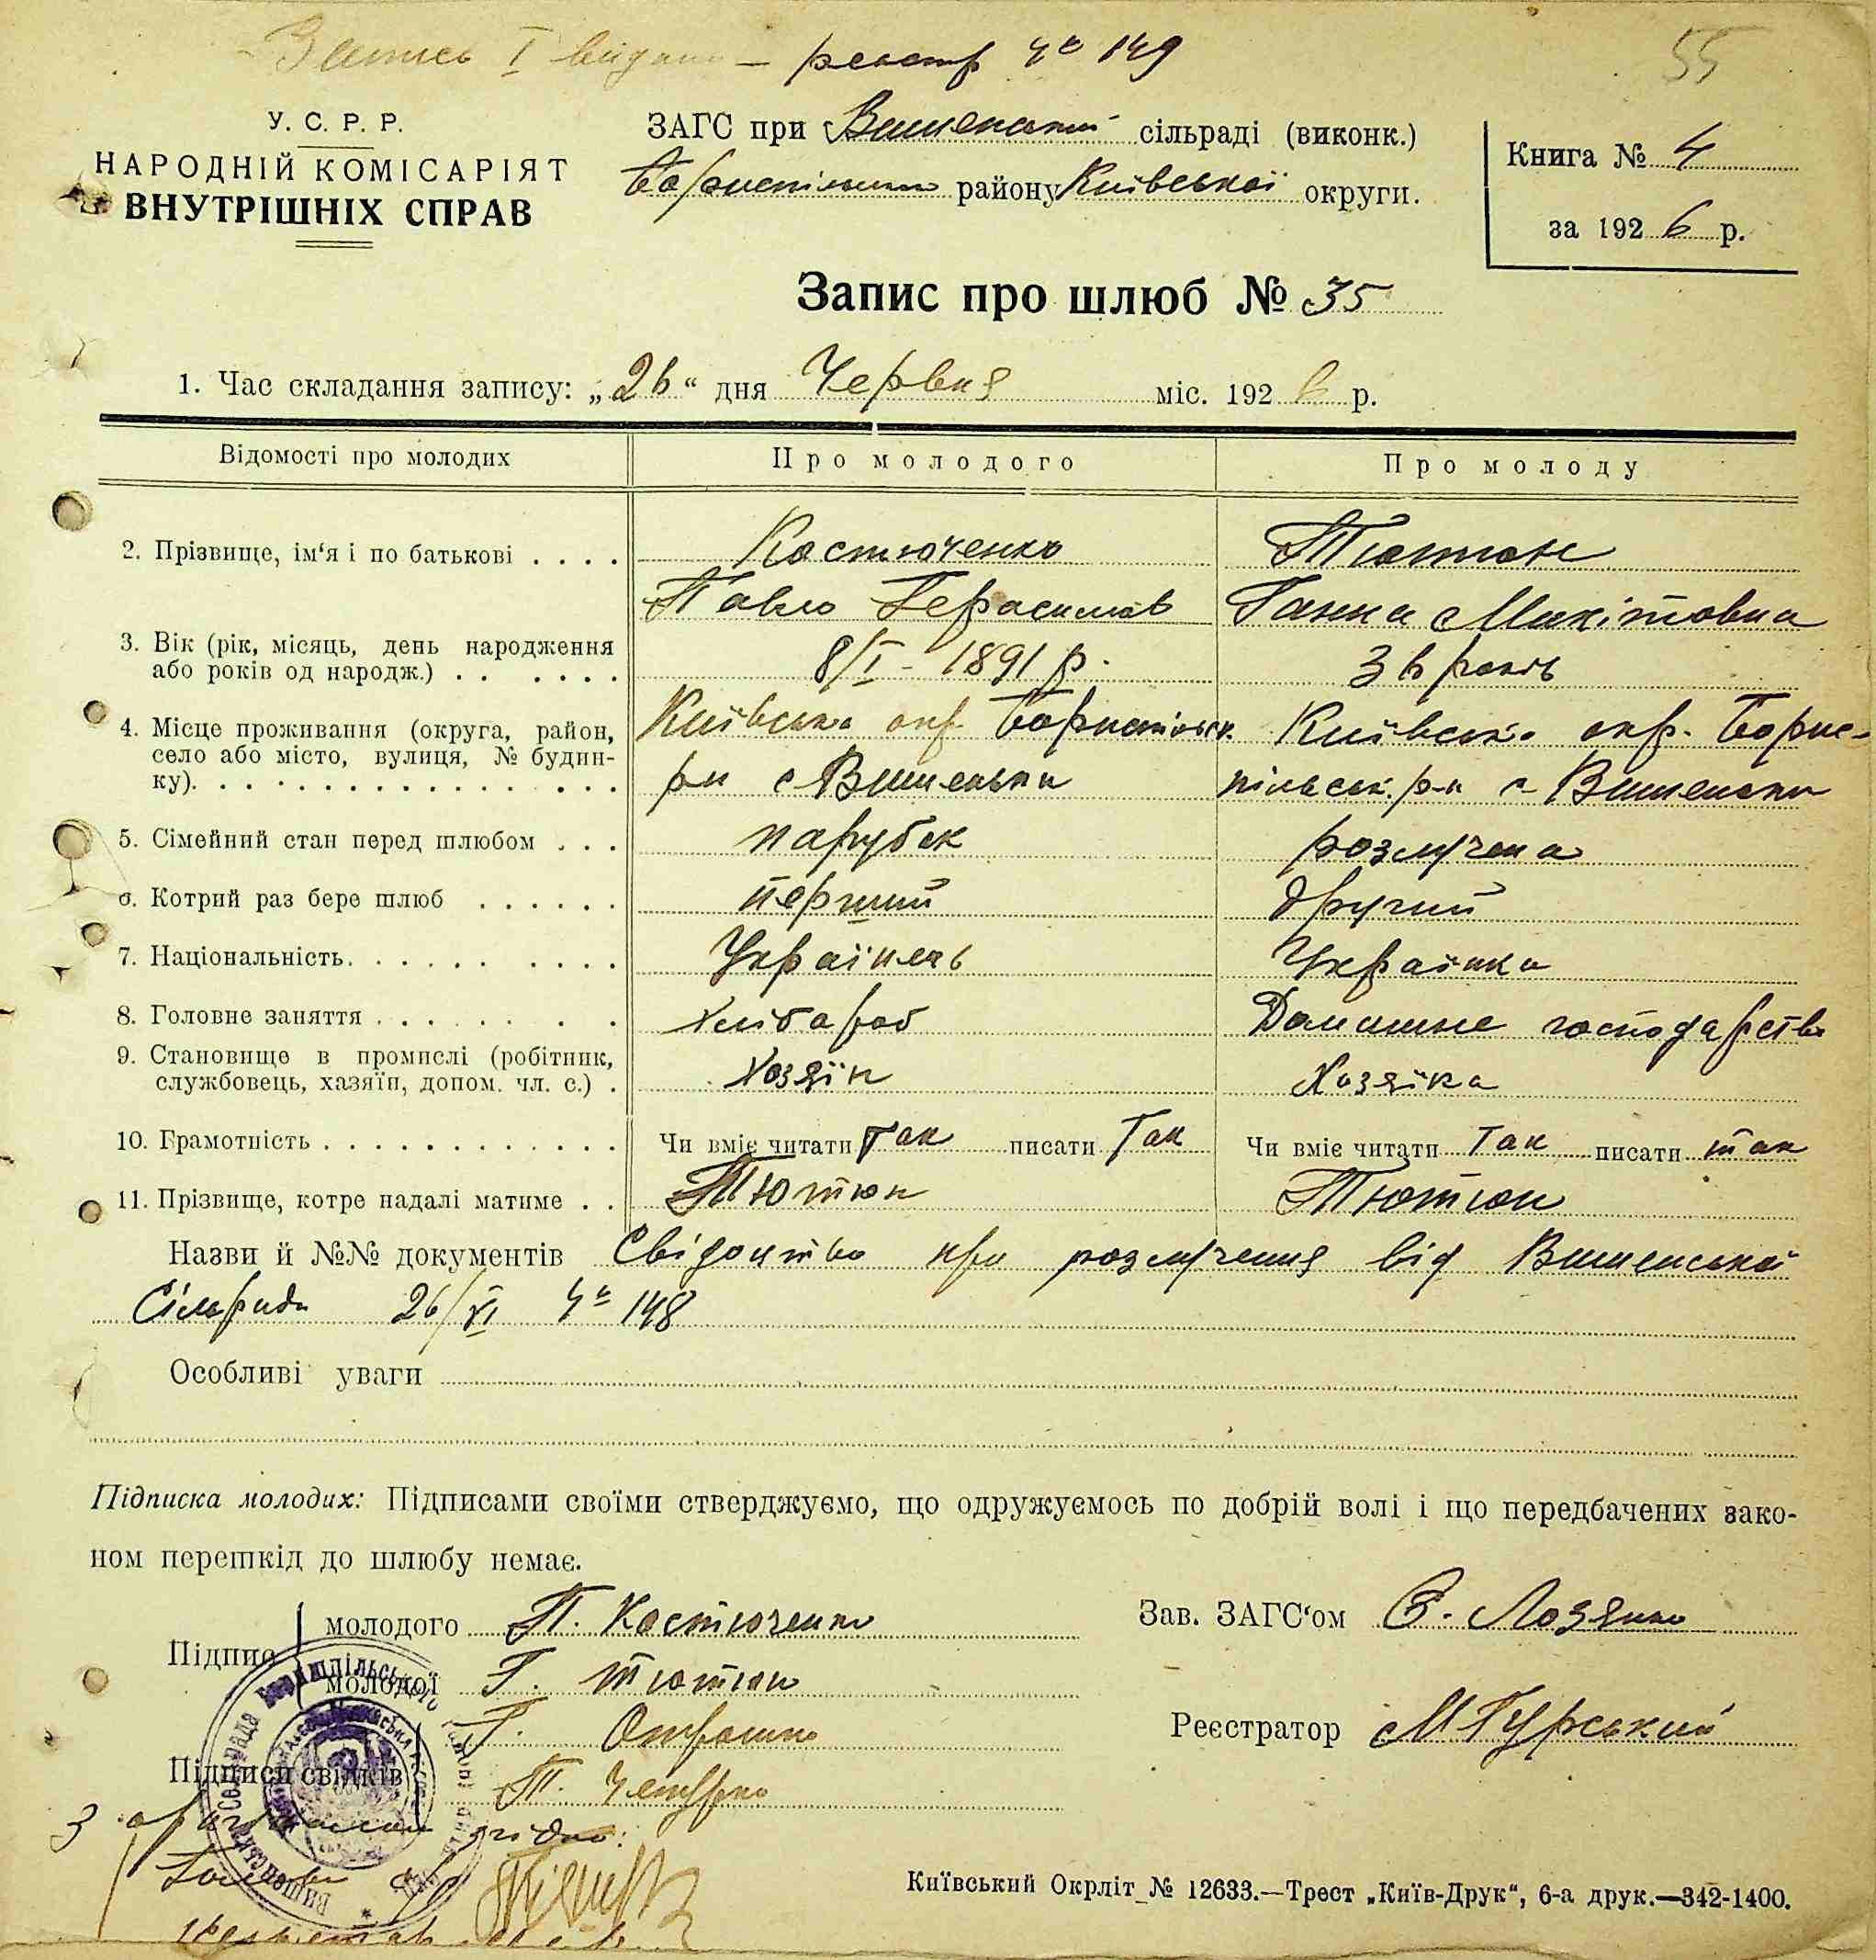 Запись I видано — реестр № 149
55
У. С. Р. Р.
НАРОДНІЙ КОМІСАРІЯТ
ВНУТРІШНІХ СПРАВ
ЗАГС при Вишенській сільраді (виконк.)
Бориспільськ району Київської округи.
Книга № 4
за 1926 р.
Запис про шлюб № 35
1. Час складання запису: „26“ дня Червня міс. 1926 р.
Відомості про молодих
Про молодого
Про молоду
2. Прізвище, ім‘я і по батькові
Костюченко
Павло Герасимов
Тютюн
Ганна Микітовна
3. Вік (рік, місяць, день народження
або років од народж.)
8/I - 1891 р.
36 років
4. Місце проживання (округа, район,
село або місто, вулиця, № будин-
ку).
Київська окр. Бориспільск.
рн с Вишеньки
Київська окр. Борис-
пільськ. р-н с Вишеньки
5. Сімейний стан перед шлюбом
парубок
розлучена
6. Котрий раз бере шлюб
перший
другий
7. Національність
Українець
Українка
8. Головне заняття
Хлібороб
Домашнє господарство
9. Становище в промислі (робітник,
службовець, хазяїн, допом. чл. с.)
Хозяїн
Хозяїка
10. Грамотність
Чи вміє читати Так писати Так
Чи вміє читати Так писати так
11. Прізвище, котре надалі матиме
Тютюн
Тютюн
Назви й №№ документів Свідоцтво про розлучення від Вишенської
Сільради 26/VI № 148
Особливі уваги
Підписка молодих: Підписами своїми стверджуємо, що одружуємось по добрій волі і що передбачених зако-
ном перешкід до шлюбу немає.
Підпис
молодого П. Костюченко
молодої Г. Тютюн
Підписи свідків
Г.
П.
Зав. ЗАГС‘ом С. Лозенко
Реєстратор М Гурський
З оригіналом згідно:
Голова с/р
Київський Окрліт № 12633.—Трест „Київ-Друк“, 6-а друк.—342-1400.